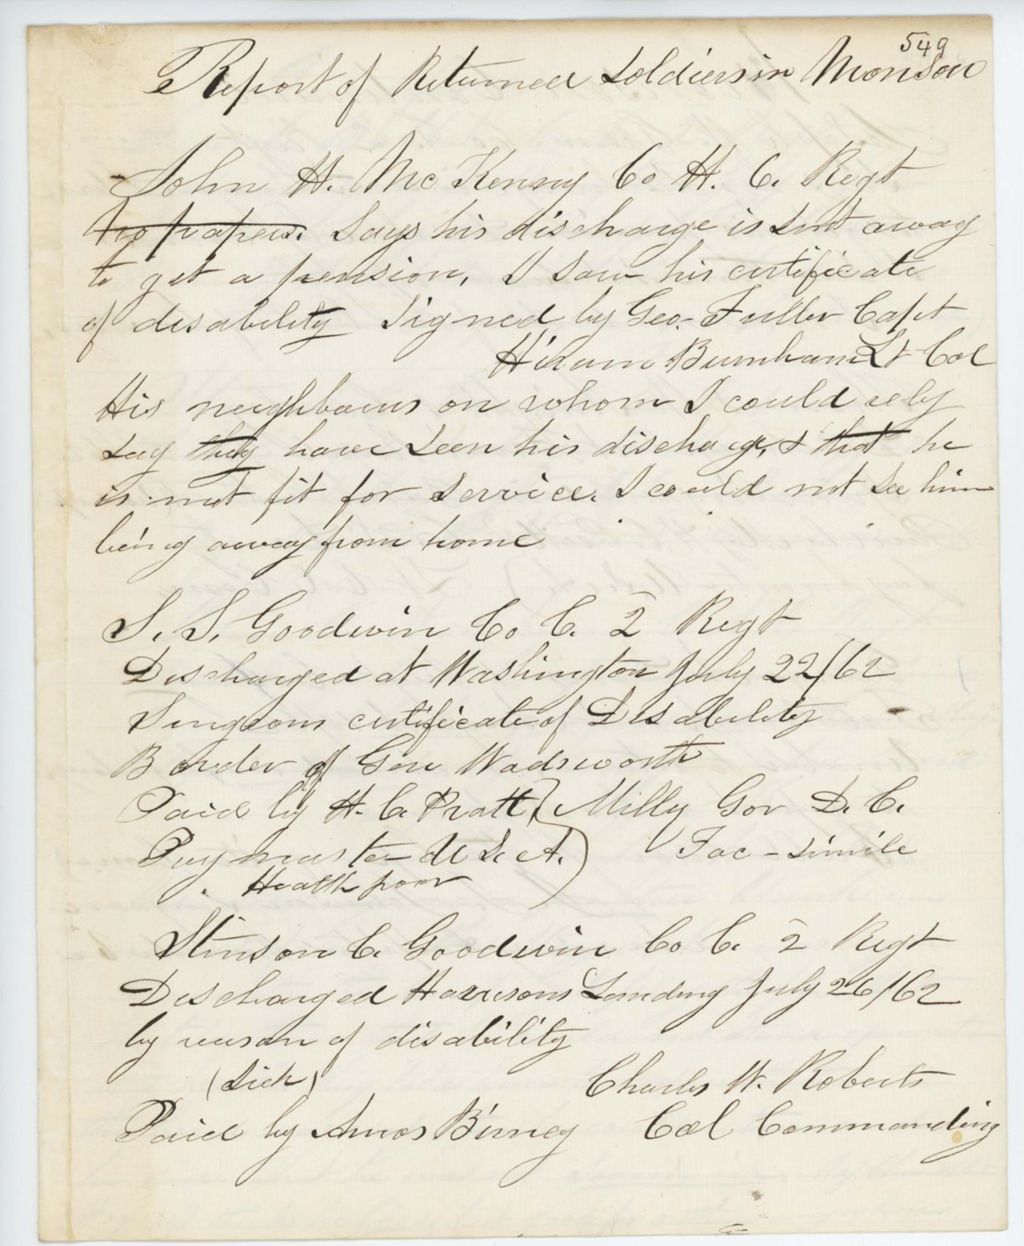 549
Report of Returned Soldiers in Monson
John H. McKenny Co H. 6. Regt
No papers. Says his discharge is sent away
to get a pension, I saw his certificate
of disability signed by Geo. Fuller Capt
Hiram Burnham Lt Col
His neighbours on whom I could rely
say they have seen his discharge, & that he
is not fit for service. I could not see him
being away from home
S. S. Goodwin Co C. 2 Regt
Discharged at Washington July 22/62
Surgeons certificate of Disability
B order of Gen Wadsworth
Paid by H. C. Pratt, Milly Gov D. C.
Paymaster U. S. A. Fac-simile
Health poor
Stinson C. Goodwin Co C. 2 Regt
Discharged Harrisons Landing July 26/62
by reason of disability
(Sick) Charles W. Roberts
Paid by Amos Binney Col Commanding